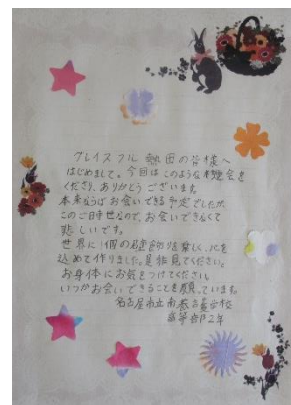 グレイスフル 熱田の皆様へ
はじめまして。今回はこのような機会を
くださり、ありがとうございます。
本来ならば お会いできる予定でしたが、
このご日時世なので、お会いできなくて
悲しいです。
世界に1個の壁飾りを楽しく、心を
込めて作りました。是非見てください。
お身体にお気をつけてください。
いつかお会いできることを願っています。
名古屋市立南養護学校
高等部2年